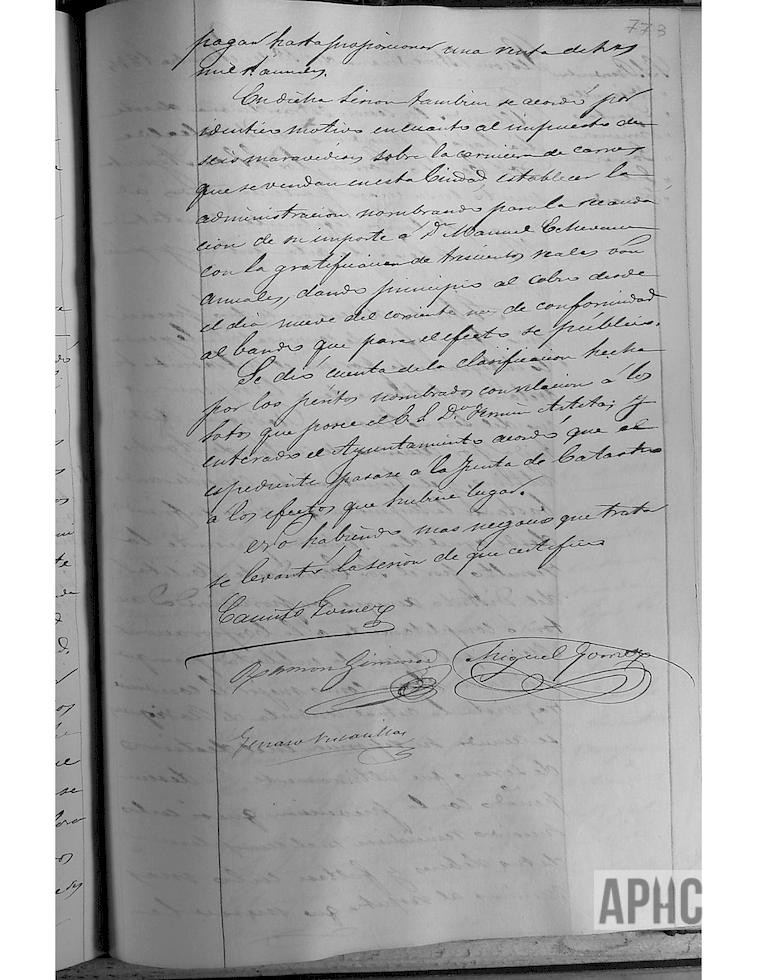 773
pagar hasta proporcionar una renta de tres
mil anuales.
En dicha sesion tambien se acordó por
identico motivo en cuanto al impuesto de
seis maravedises sobre la carnicera de carnes
que se vendan en esta Ciudad, establecer la
administracion, nombrando para la recauda
cion de su importe á Dn Manuel Echeverria
con la gratificacion de trescientos reales von
anuales, dando principio al cobro desde
el dia nueve del corriente mes de conformidad
al bando que para el efecto se publicó.
Se dió cuenta de la clasificacion hecha
por los peritos nombrados con relacion á los
sotos que posee el E. S. Dn Fermin Arteta; y
enterado el Ayuntamiento acordó que el
espediente pasase a la Junta de Catastro
á los efectos que hubiere lugar.
habiendo mas negocio que tratar
se levantó la sesion de que certifico
Canuto Gomez
Ramon Gimenez Miguel Gomez
Genaro
APHC